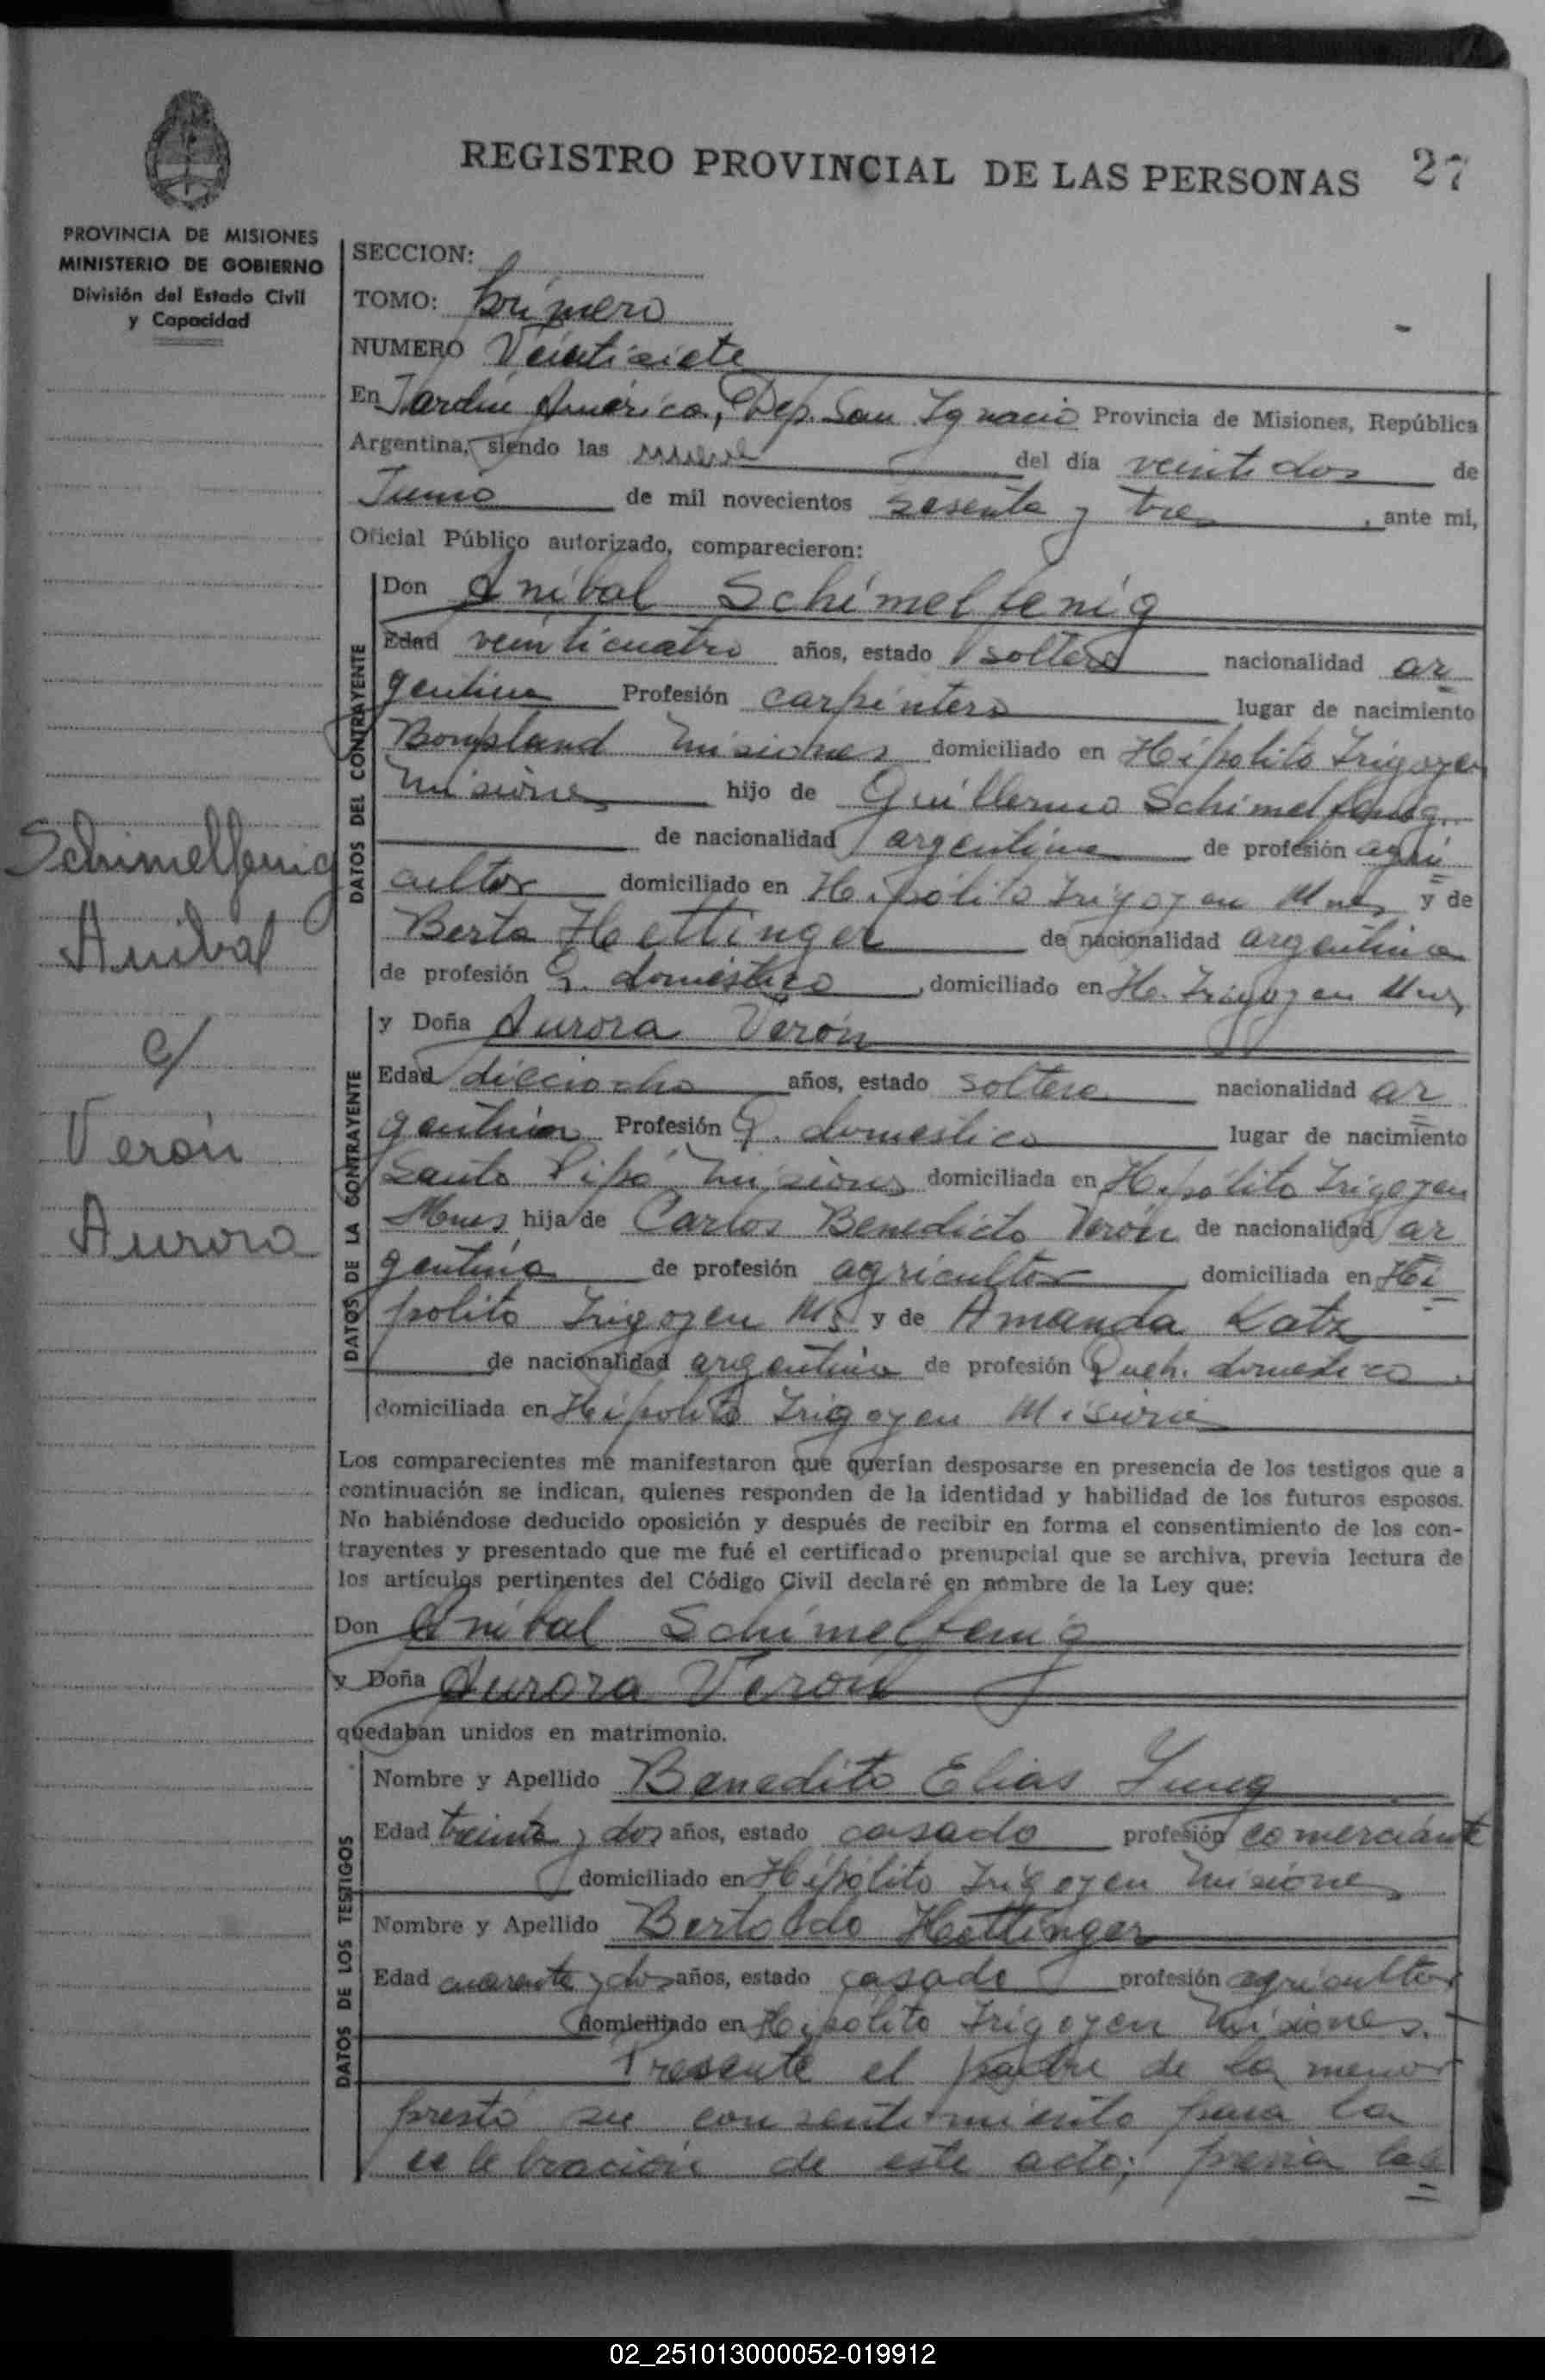 REGISTRO PROVINCIAL DE LAS PERSONAS 27
PROVINCIA DE MISIONES
MINISTERIO DE GOBIERNO
División del Estado Civil
y Capacidad
Schimelfenig
Anibal
c/
Verón
Aurora
SECCION:
TOMO: Primero
NUMERO Veintisiete
En Jardin América, Dep. San Ignacio Provincia de Misiones, República
Argentina, siendo las nueve del día veintidos de
Junio de mil novecientos sesenta y tres, ante mi,
Oficial Público autorizado, comparecieron:
DATOS DEL CONTRAYENTE
Don Anibal Schimelfenig
Edad veinticuatro años, estado soltero nacionalidad ar
gentina Profesión carpintero lugar de nacimiento
Bompland Misiones domiciliado en Hipolito Irigoyen
Misiones hijo de Guillermo Schimelfenig
de nacionalidad argentina de profesión agri
cultor domiciliado en Hipólito Irigoyen Mnes y de
Berta Hettinger de nacionalidad argentina
de profesión Q. domestico, domiciliado en H. Irigoyen Mns
DATOS DE LA CONTRAYENTE
y Doña Aurora Verón
Edad dieciocho años, estado soltera nacionalidad ar
gentina Profesión Q. domestico lugar de nacimiento
Santo Pipó Misiones domiciliada en Hipólito Irigoyen
Mnes hija de Carlos Benedicto Verón de nacionalidad ar
gentina de profesión agricultor domiciliada en Hi
polito Irigoyen Ms y de Amanda Katz
de nacionalidad argentina de profesión Queh. domestico
domiciliada en Hipolito Irigoyen Misiones
Los comparecientes me manifestaron que querían desposarse en presencia de los testigos que a
continuación se indican, quienes responden de la identidad y habilidad de los futuros esposos.
No habiéndose deducido oposición y después de recibir en forma el consentimiento de los con-
trayentes y presentado que me fué el certificado prenupcial que se archiva, previa lectura de
los artículos pertinentes del Código Civil declaré en nombre de la Ley que:
Don Anibal Schimelfenig
y Doña Aurora Verón
quedaban unidos en matrimonio.
DATOS DE LOS TESTIGOS
Nombre y Apellido Benedito Elias Jung
Edad treinta y dos años, estado casado profesión comerciante
domiciliado en Hipólito Irigoyen Misiones
Nombre y Apellido Bertoldo Hettinger
Edad cuarenta y dos años, estado casado profesión agricultor
domiciliado en Hipólito Irigoyen Misiones.
Presente el padre de la menor
prestó su consentimiento para la
celebración de este acto; previa lec
02_251013000052-019912